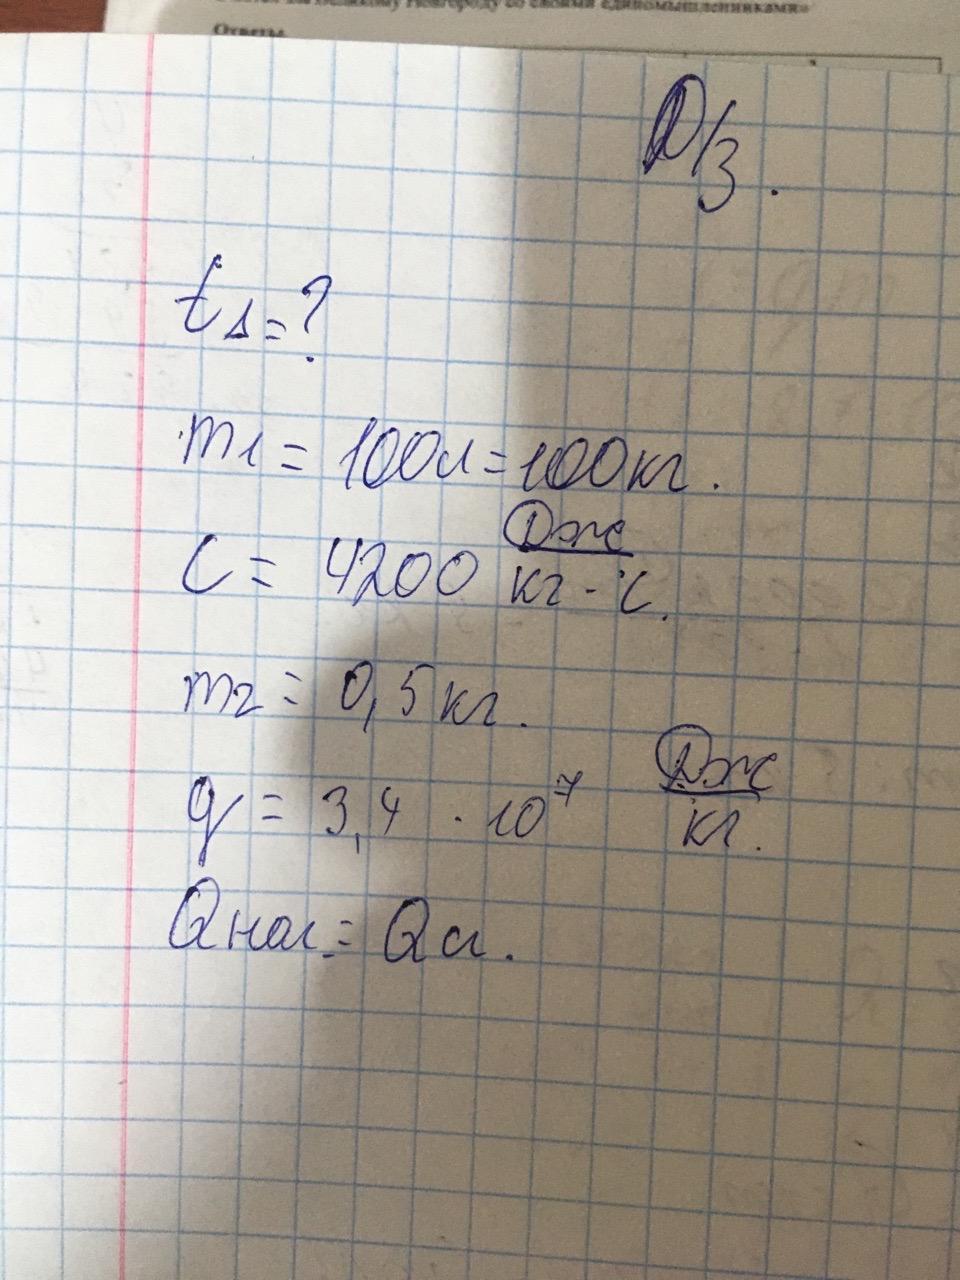 Великому Новгороду со своими единомышленниками»
Ответы
Д/З.
t1=?
m1 = 100л = 100кг.
c = 4200 Дж/кг·°C.
m2 = 0,5кг.
q = 3,4 · 10⁷ Дж/кг.
Qнаг. = Qсг.